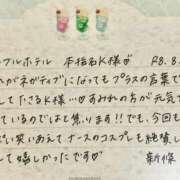 フルホテル 本指名K様♂ R8.8.
がネガティブになってもプラスの言葉で
してたさるK様…♡すみれの方が元気で
ているのでは!と焦ります!!でも、今回も
い笑いあえてナースのコスプレも絶賛し
して嬉しかったです♡